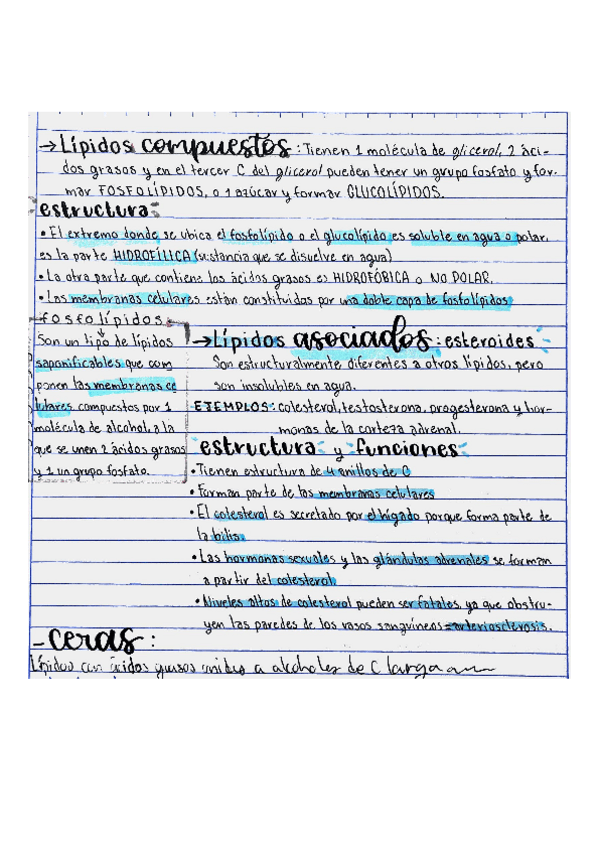 →Lípidos compuestos: Tienen 1 molécula de glicerol, 2 áci-
dos grasos y en el tercer C del glicerol pueden tener un grupo fosfato y for-
mar FOSFOLÍPIDOS, o 1 azúcar y formar GLUCOLÍPIDOS.
estructura:
• El extremo donde se ubica el fosfolípido o el glucolípido es soluble en agua o polar,
es la parte HIDROFÍLICA (sustancia que se disuelve en agua)
• La otra parte que contiene los ácidos grasos es HIDROFÓBICA o NO POLAR.
• Las membranas celulares están constituidas por una doble capa de fosfolípidos
fosfolípidos:
Son un tipo de lípidos
saponificables que com
ponen las membranas ce
lulares compuestos por 1
molécula de alcohol, a la
que se unen 2 ácidos grasos
y 1 un grupo fosfato.
→Lípidos asociados: esteroides
Son estructuralmente diferentes a otros lípidos, pero
son insolubles en agua.
EJEMPLOS: colesterol, testosterona, progesterona y hor-
monas de la corteza adrenal.
estructura y funciones
• Tienen estructura de 4 anillos de C
• Forman parte de las membranas celulares
• El colesterol es secretado por el hígado porque forma parte de
la bilis.
• Las hormonas sexuales y las glándulas adrenales se forman
a partir del colesterol.
• Niveles altos de colesterol pueden ser fatales, ya que obstru-
yen las paredes de los vasos sanguíneos = arteriosclerosis.
- ceras:
Lípidos con ácidos grasos unidos a alcoholes de C larga